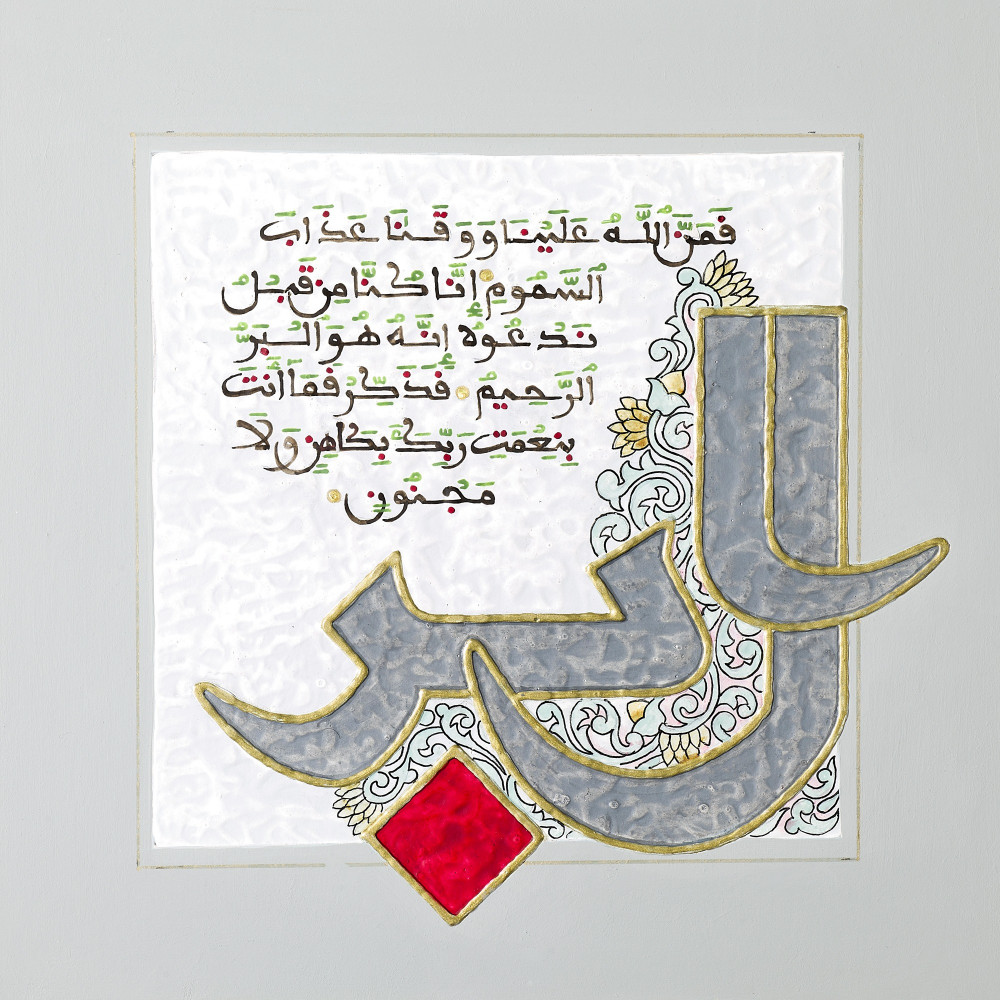 فَمَنَّ اللَّهُ عَلَيْنَا وَوَقَىٰنَا عَذَابَ
السَّمُومِ إِنَّا كُنَّا مِن قَبْلُ
نَدْعُوهُ إِنَّهُ هُوَ الْبَرُّ
الرَّحِيمُ فَذَكِّرْ فَمَا أَنتَ
بِنِعْمَتِ رَبِّكَ بِكَاهِنٍ وَلَا
مَجْنُونٍ
البر